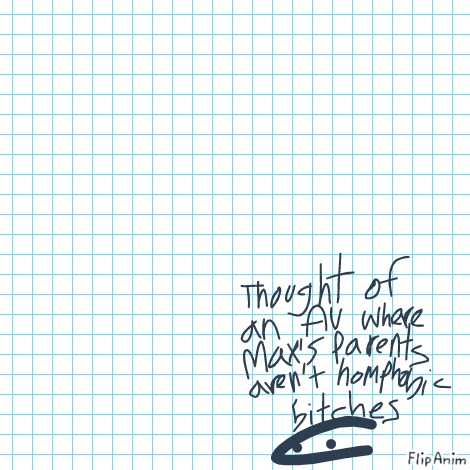 Thought of
an AU where
Max's Parents
aren't homphobic
bitches
FlipAnim